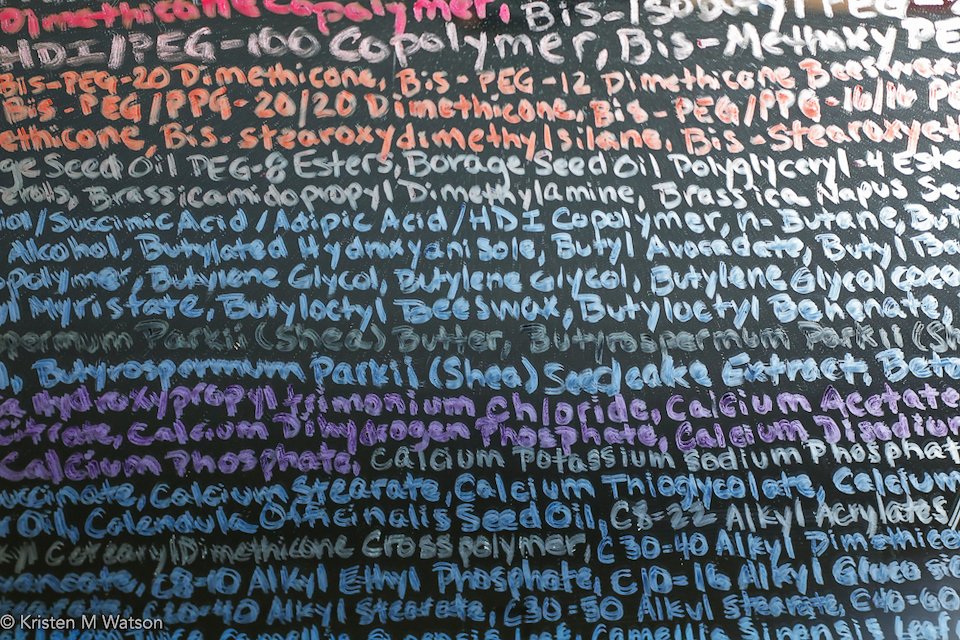 Dimethicone Copolymer, Bis-Isobutyl PEG
HDI/PEG-100 Copolymer, Bis-Methoxy PE
Bis-PEG-20 Dimethicone, Bis-PEG-12 Dimethicone Beeswax,
Bis-PEG/PPG-20/20 Dimethicone, Bis-PEG/PPG-16/16 PE
ethicone, Bis-stearoxydimethylsilane, Bis-Stearoxyeth
ge Seed Oil PEG-8 Esters, Borage Seed Oil Polyglyceryl-4 Este
erolls, Brassicamidopropyl Dimethylamine, Brassica Napus See
iol/Succinic Acid/Adipic Acid/HDI Copolymer, n-Butane, But
Alcohol, Butylated Hydroxyanisole, Butyl Avocadate, Butyl
opolymer, Butylene Glycol, Butylene Glycol, Butylene Glycol coco
yl Myristate, Butyloctyl Beeswax, Butyloctyl Behenate,
permum Parkii (Shea) Butter, Butyrospermum Parkii (Sh
Butyrospermum Parkii (Shea) Seedcake Extract, Beta
Hydroxypropyltrimonium Chloride, Calcium Acetate
Citrate, Calcium Dihydrogen Phosphate, Calcium Disodium
Calcium Phosphate, Calcium Potassium sodium Phosphat
uccinate, Calcium Stearate, Calcium Thioglycolate, Calcium
Oil, Calendula Officinalis Seed Oil, C8-22 Alkyl Acrylates/
kyl Cetearyl Dimethicone Crosspolymer, C30-40 Alkyl Dimethico
C8-10 Alkyl Ethyl Phosphate, C10-16 Alkyl Glucosid
C20-40 Alkyl stearate, C30-50 Alkyl stearate, C40-60
Camellia Sinensis Leaf
© Kristen M Watson